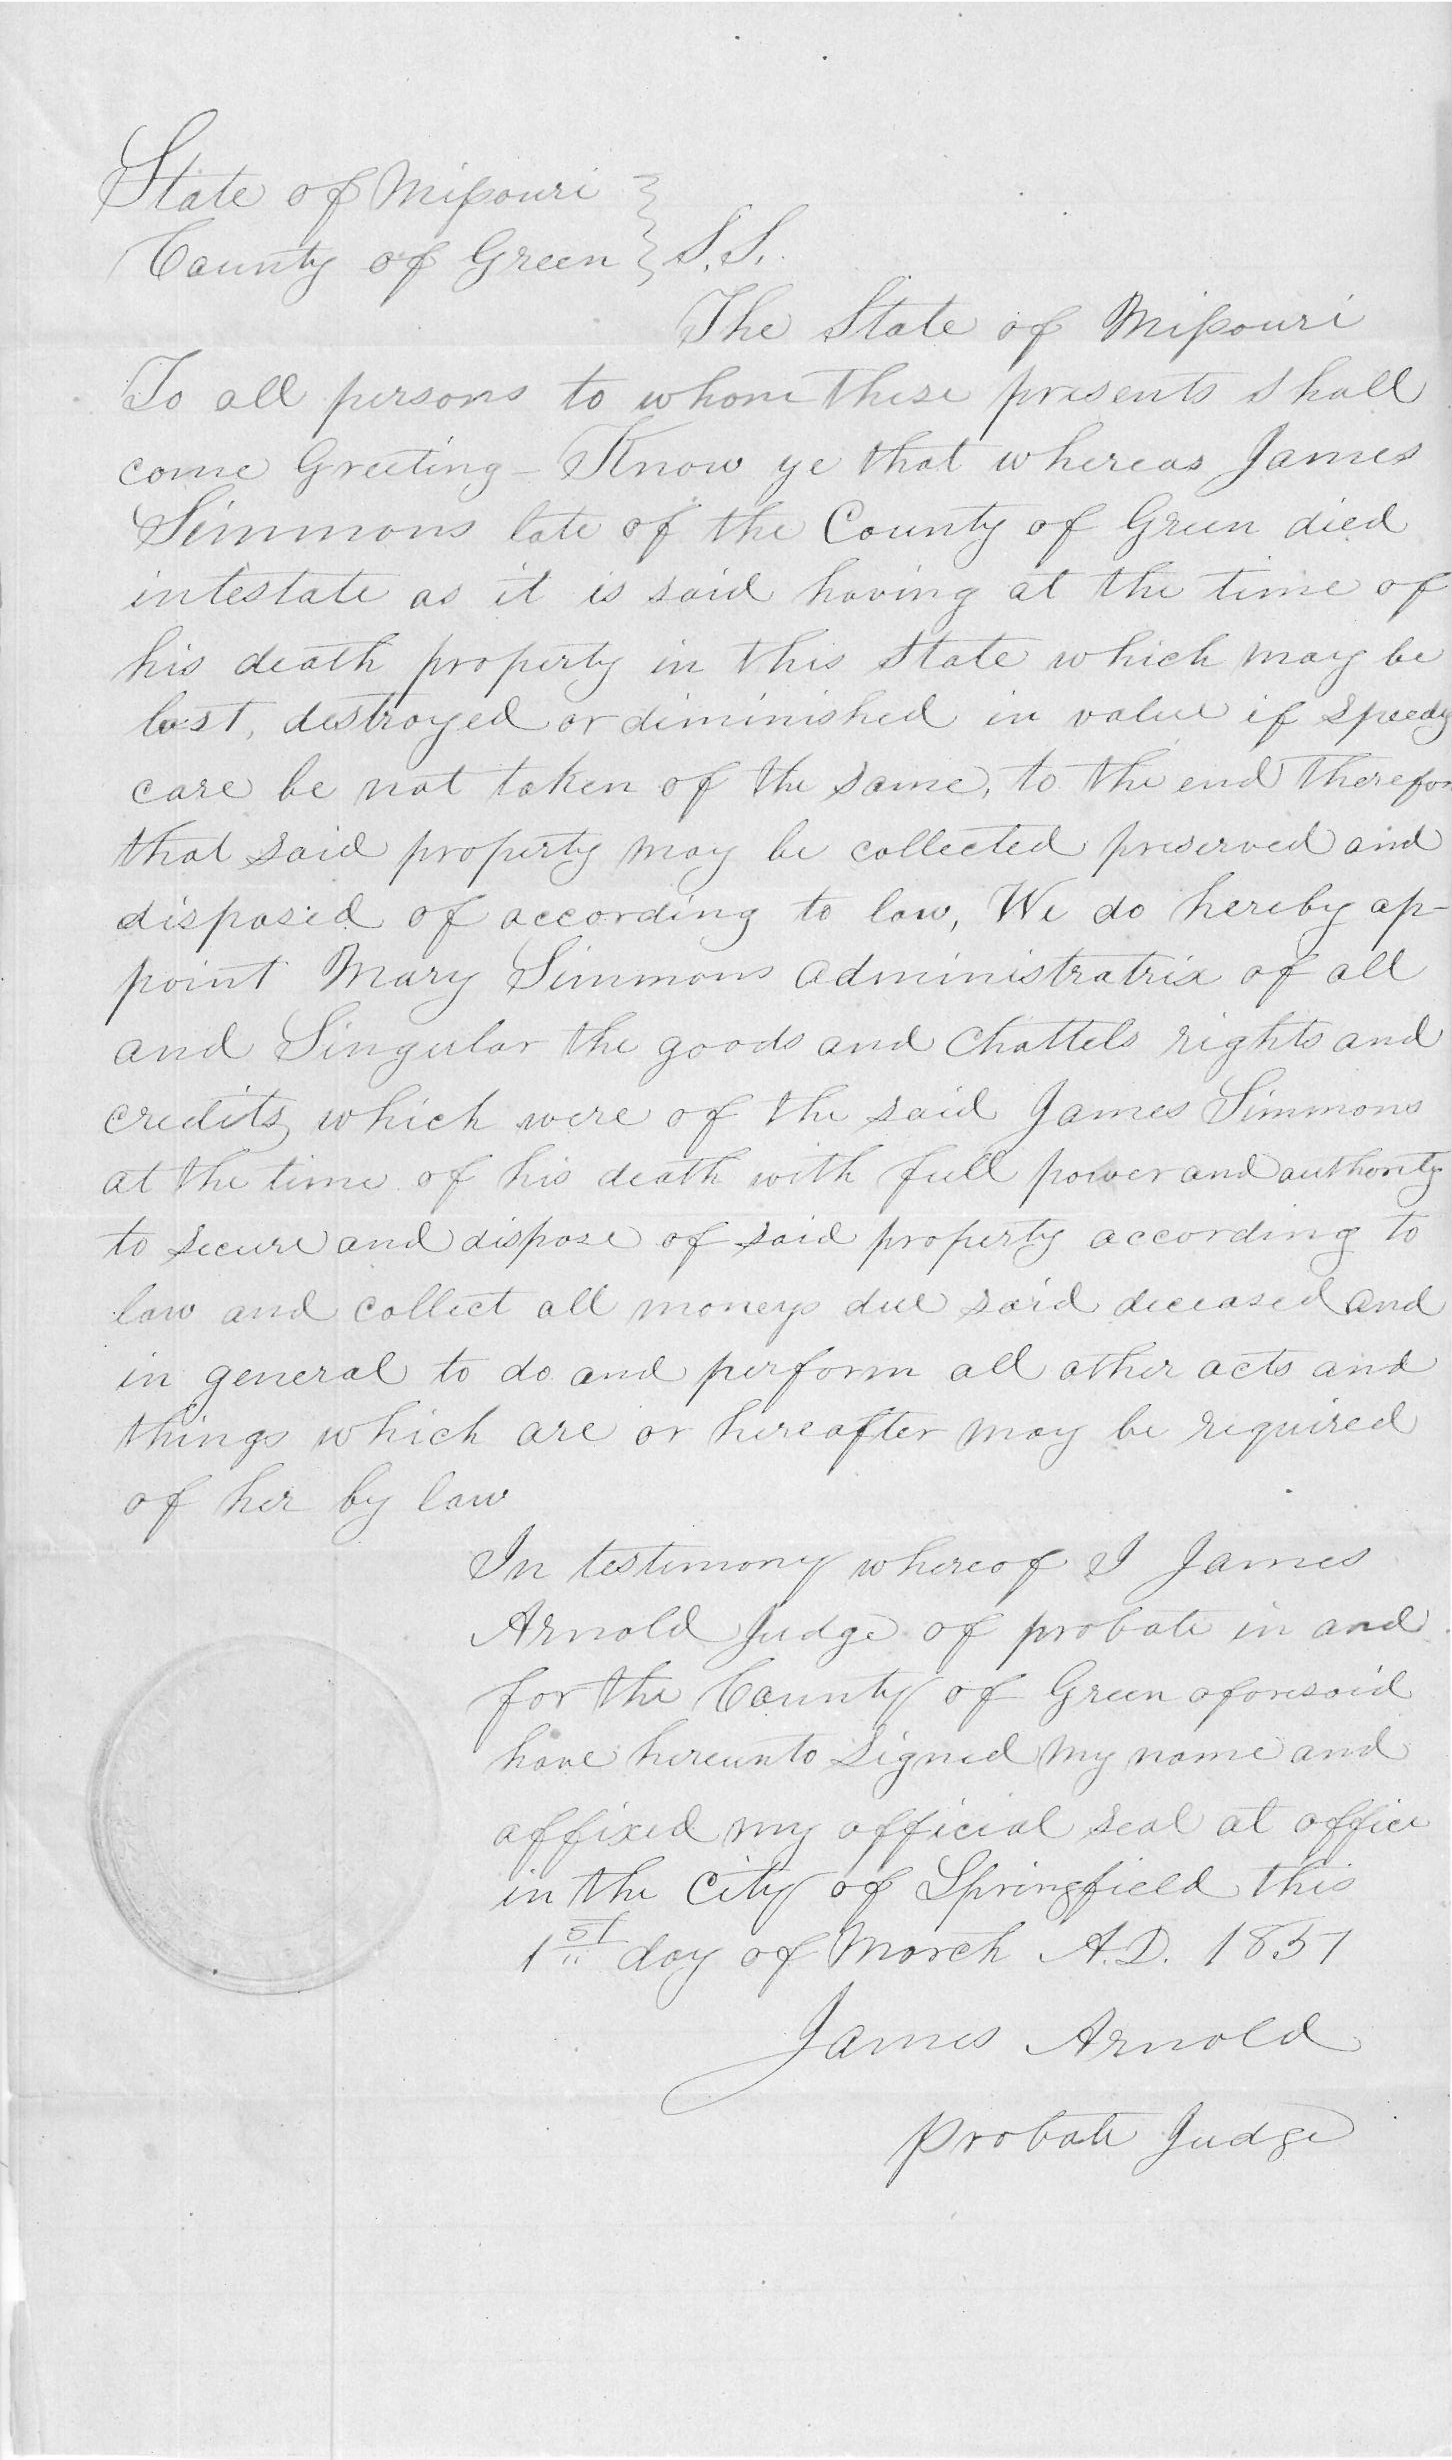 State of Missouri }
County of Green } S.S.
The State of Missouri
To all persons to whom these presents shall
come Greeting - Know ye that whereas James
Simmons late of the County of Green died
intestate as it is said having at the time of
his death property in this State which may be
lost, destroyed or diminished in value if speedy
care be not taken of the same, to the end therefor
that said property may be collected preserved and
disposed of according to law, We do hereby ap-
point Mary Simmons administratrix of all
and Singular the goods and Chattels rights and
credits which were of the said James Simmons
at the time of his death with full power and authority
to secure and dispose of said property according to
law and collect all moneys due said deceased and
in general to do and perform all other acts and
things which are or hereafter may be required
of her by law
In testimony whereof I James
Arnold Judge of probate in and
for the County of Green aforesaid
have hereunto signed my name and
affixed my official seal at office
in the City of Springfield this
1st day of March A.D. 1857
James Arnold
Probate Judge